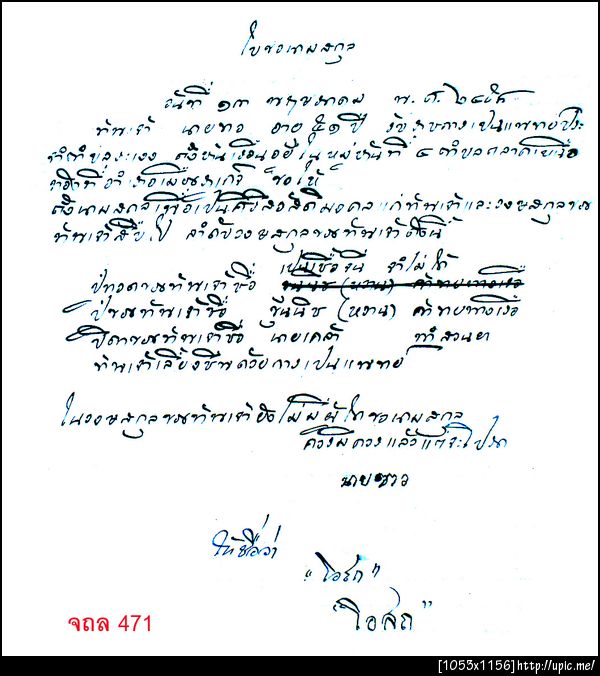 ใบขอนามสกุล
วันที่ ๑๓ พฤษภาคม พ.ศ. ๒๔๕๖
ข้าพเจ้า นายทอ อายุ ๕๑ ปี รับราชการเป็นแพทย์ประ
จำตำบลระแงง ตั้งบ้านเรือนอยู่ในหมู่บ้านที่ ๔ ตำบลตลาดเหนือ
ท้องที่อำเภอเมืองภูเก็ต ขอให้
ตั้งนามสกุลเพื่อเป็นศิริสวัสดิมงคลแก่ข้าพเจ้าและวงษสกุลของ
ข้าพเจ้าสืบไป ลำดับวงษสกุลของข้าพเจ้าดังนี้
เป็นเชื้อจีน จำไม่ได้
ปู่ทวดของข้าพเจ้าชื่อ
ปู่ของข้าพเจ้าชื่อ ขุนนิช (หวาน) ค้าขายทางเรือ
บิดาของข้าพเจ้าชื่อ นายเคล้า ทำสวนยา
ข้าพเจ้าเลี้ยงชีพด้วยการเป็นแพทย์
ในวงษสกุลของข้าพเจ้ายังไม่มีผู้ใดขอนามสกุล
ควรมิควรแล้วแต่จะโปรด
นาย
ให้ชื่อว่า
"โอสถ"
"โอสถ"
จถล 471
[1053x1156]http://upic.me/